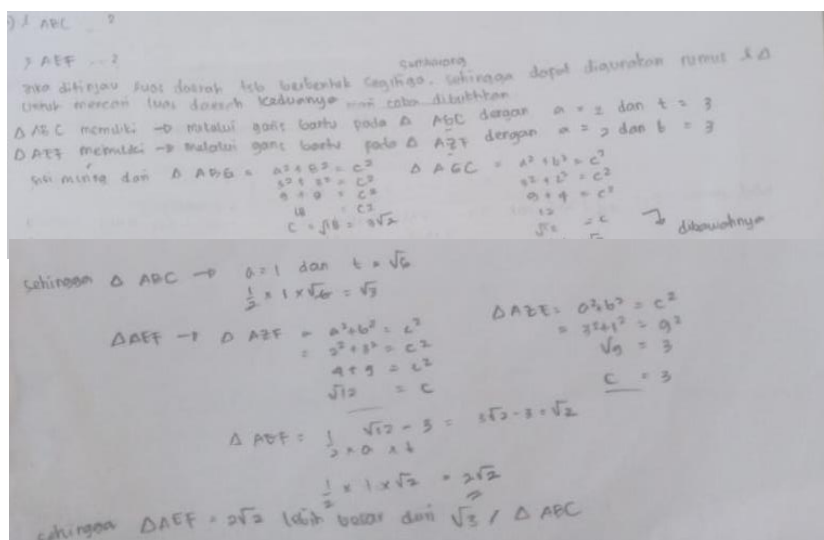 ) L ABC ... ?
L AEF ... ?
sembarang
jika ditinjau luas daerah tsb berbentuk segitiga. sehingga dapat digunakan rumus L Δ
untuk mencari luas daerah keduanya mari coba dibuktikan
Δ ABC memiliki → melalui garis bantu pada Δ AGC dengan a = 2 dan t = 3
Δ AEF memiliki → melalui garis bantu pada Δ AZF dengan a = 2 dan t = 3
sisi miring dari Δ ABG = a² + b² = c²
3² + 3² = c²
9 + 9 = c²
18 = c²
c = √18 = 3√2
Δ AGC = a² + b² = c²
3² + 2² = c²
9 + 4 = c²
12
√12 = c
dibawahnya
sehingga Δ ABC → a = 1 dan t = √6
1/2 × 1 × √6 = √3
ΔAEF → Δ AZF = a² + b² = c²
= 2² + 3² = c²
4 + 9 = c²
√12 = c
ΔAZE = a² + b² = c²
= 3² + 1² = 9²
√9 = 3
c = 3
Δ AEF = √12 - 3 = 3√2 - 3 = √2
1/2 × a × t
1/2 × 1 × √2 = 2√2
sehingga ΔAEF = 2√2 lebih besar dari √3 / Δ ABC